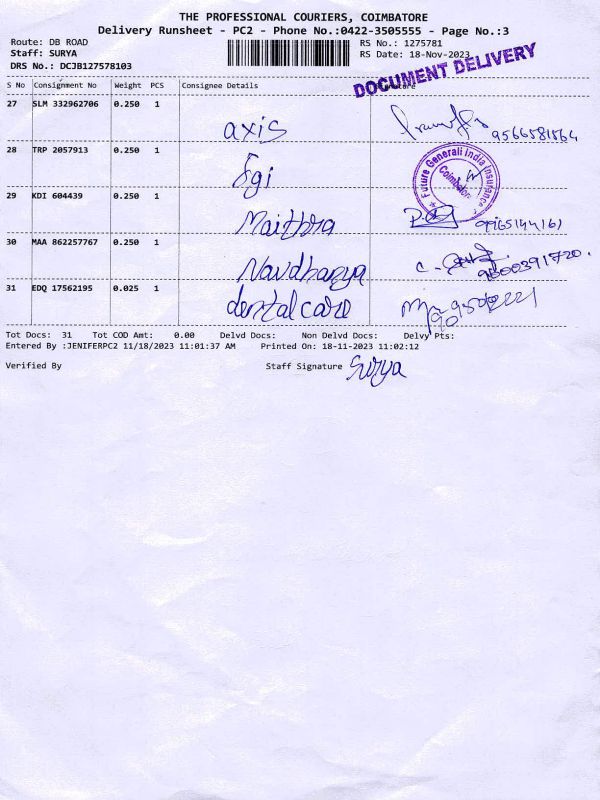 THE PROFESSIONAL COURIERS, COIMBATORE
Delivery Runsheet - PC2 - Phone No.:0422-3505555 - Page No.:3
Route: DB ROAD
Staff: SURYA
DRS No.: DCJB127578103
RS No.: 1275781
RS Date: 18-Nov-2023
DOCUMENT DELIVERY
S No Consignment No Weight PCS Consignee Details
27 SLM 332962706 0.250 1
axis 9566581564
28 TRP 2057913 0.250 1
fgi
Future Generali India Insurance
Coimbatore
29 KDI 604439 0.250 1
Maithra
30 MAA 862257767 0.250 1
Navdhanya 9600391720.
31 EDQ 17562195 0.025 1
dental care
Tot Docs: 31 Tot COD Amt: 0.00 Delvd Docs: Non Delvd Docs: Delvy Pts:
Entered By :JENIFERPC2 11/18/2023 11:01:37 AM Printed On: 18-11-2023 11:02:12
Verified By Staff Signature Surya